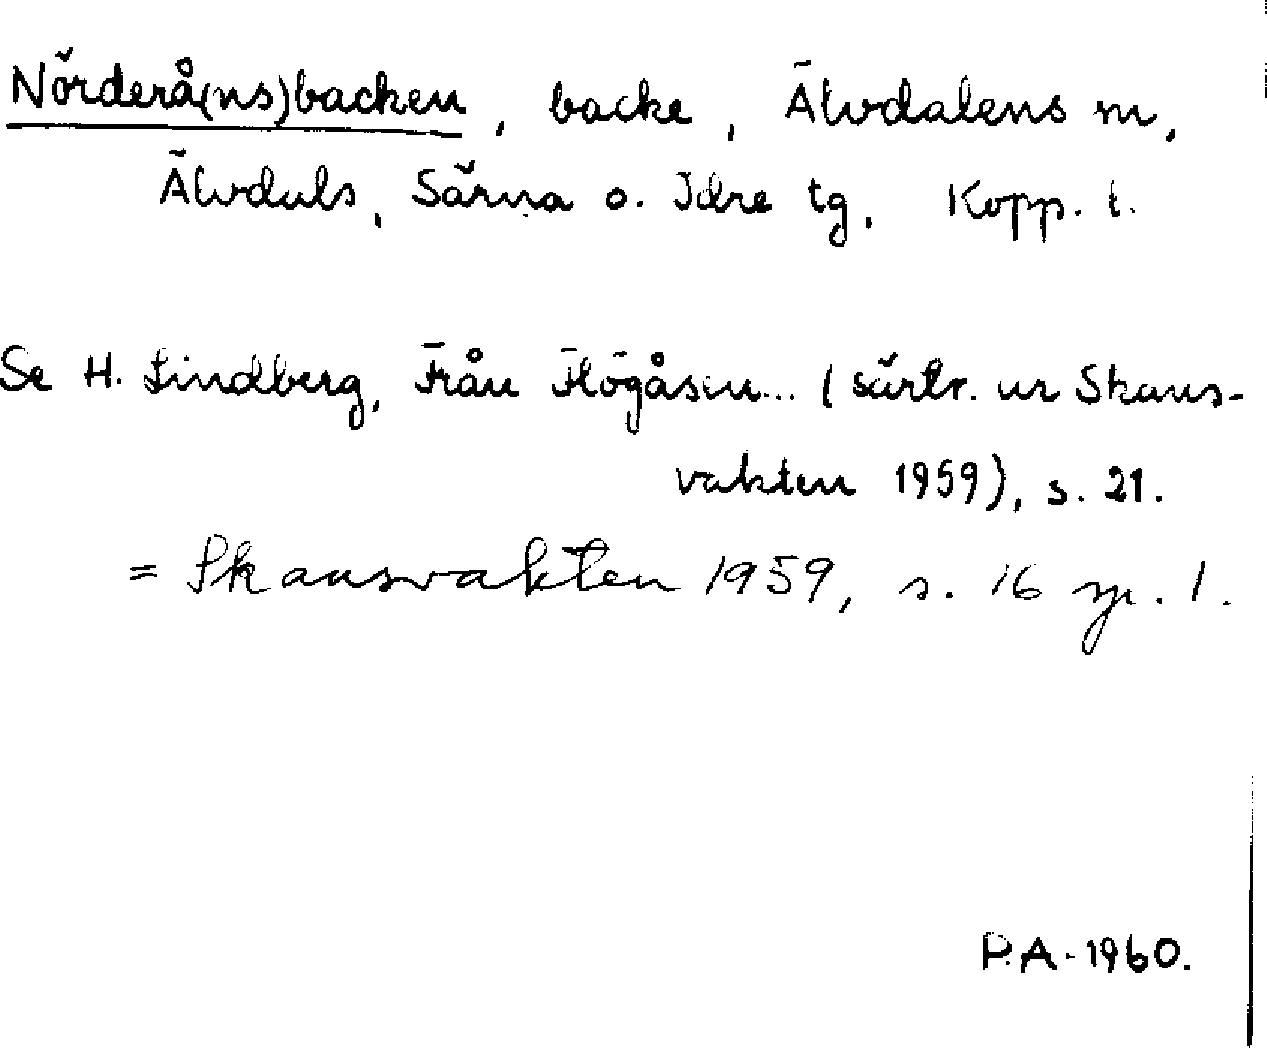 Nörderå(ns)backen, backe, Älvdalens sn,
Älvdals, Särna o. Idre tg, Kopp. l.
Se H. Lindberg, Från Högåsen... (särtr. ur Skans-
vakten 1959), s. 21.
= Skansvakten 1959, s. 16 sp. 1.
P.A. 1960.